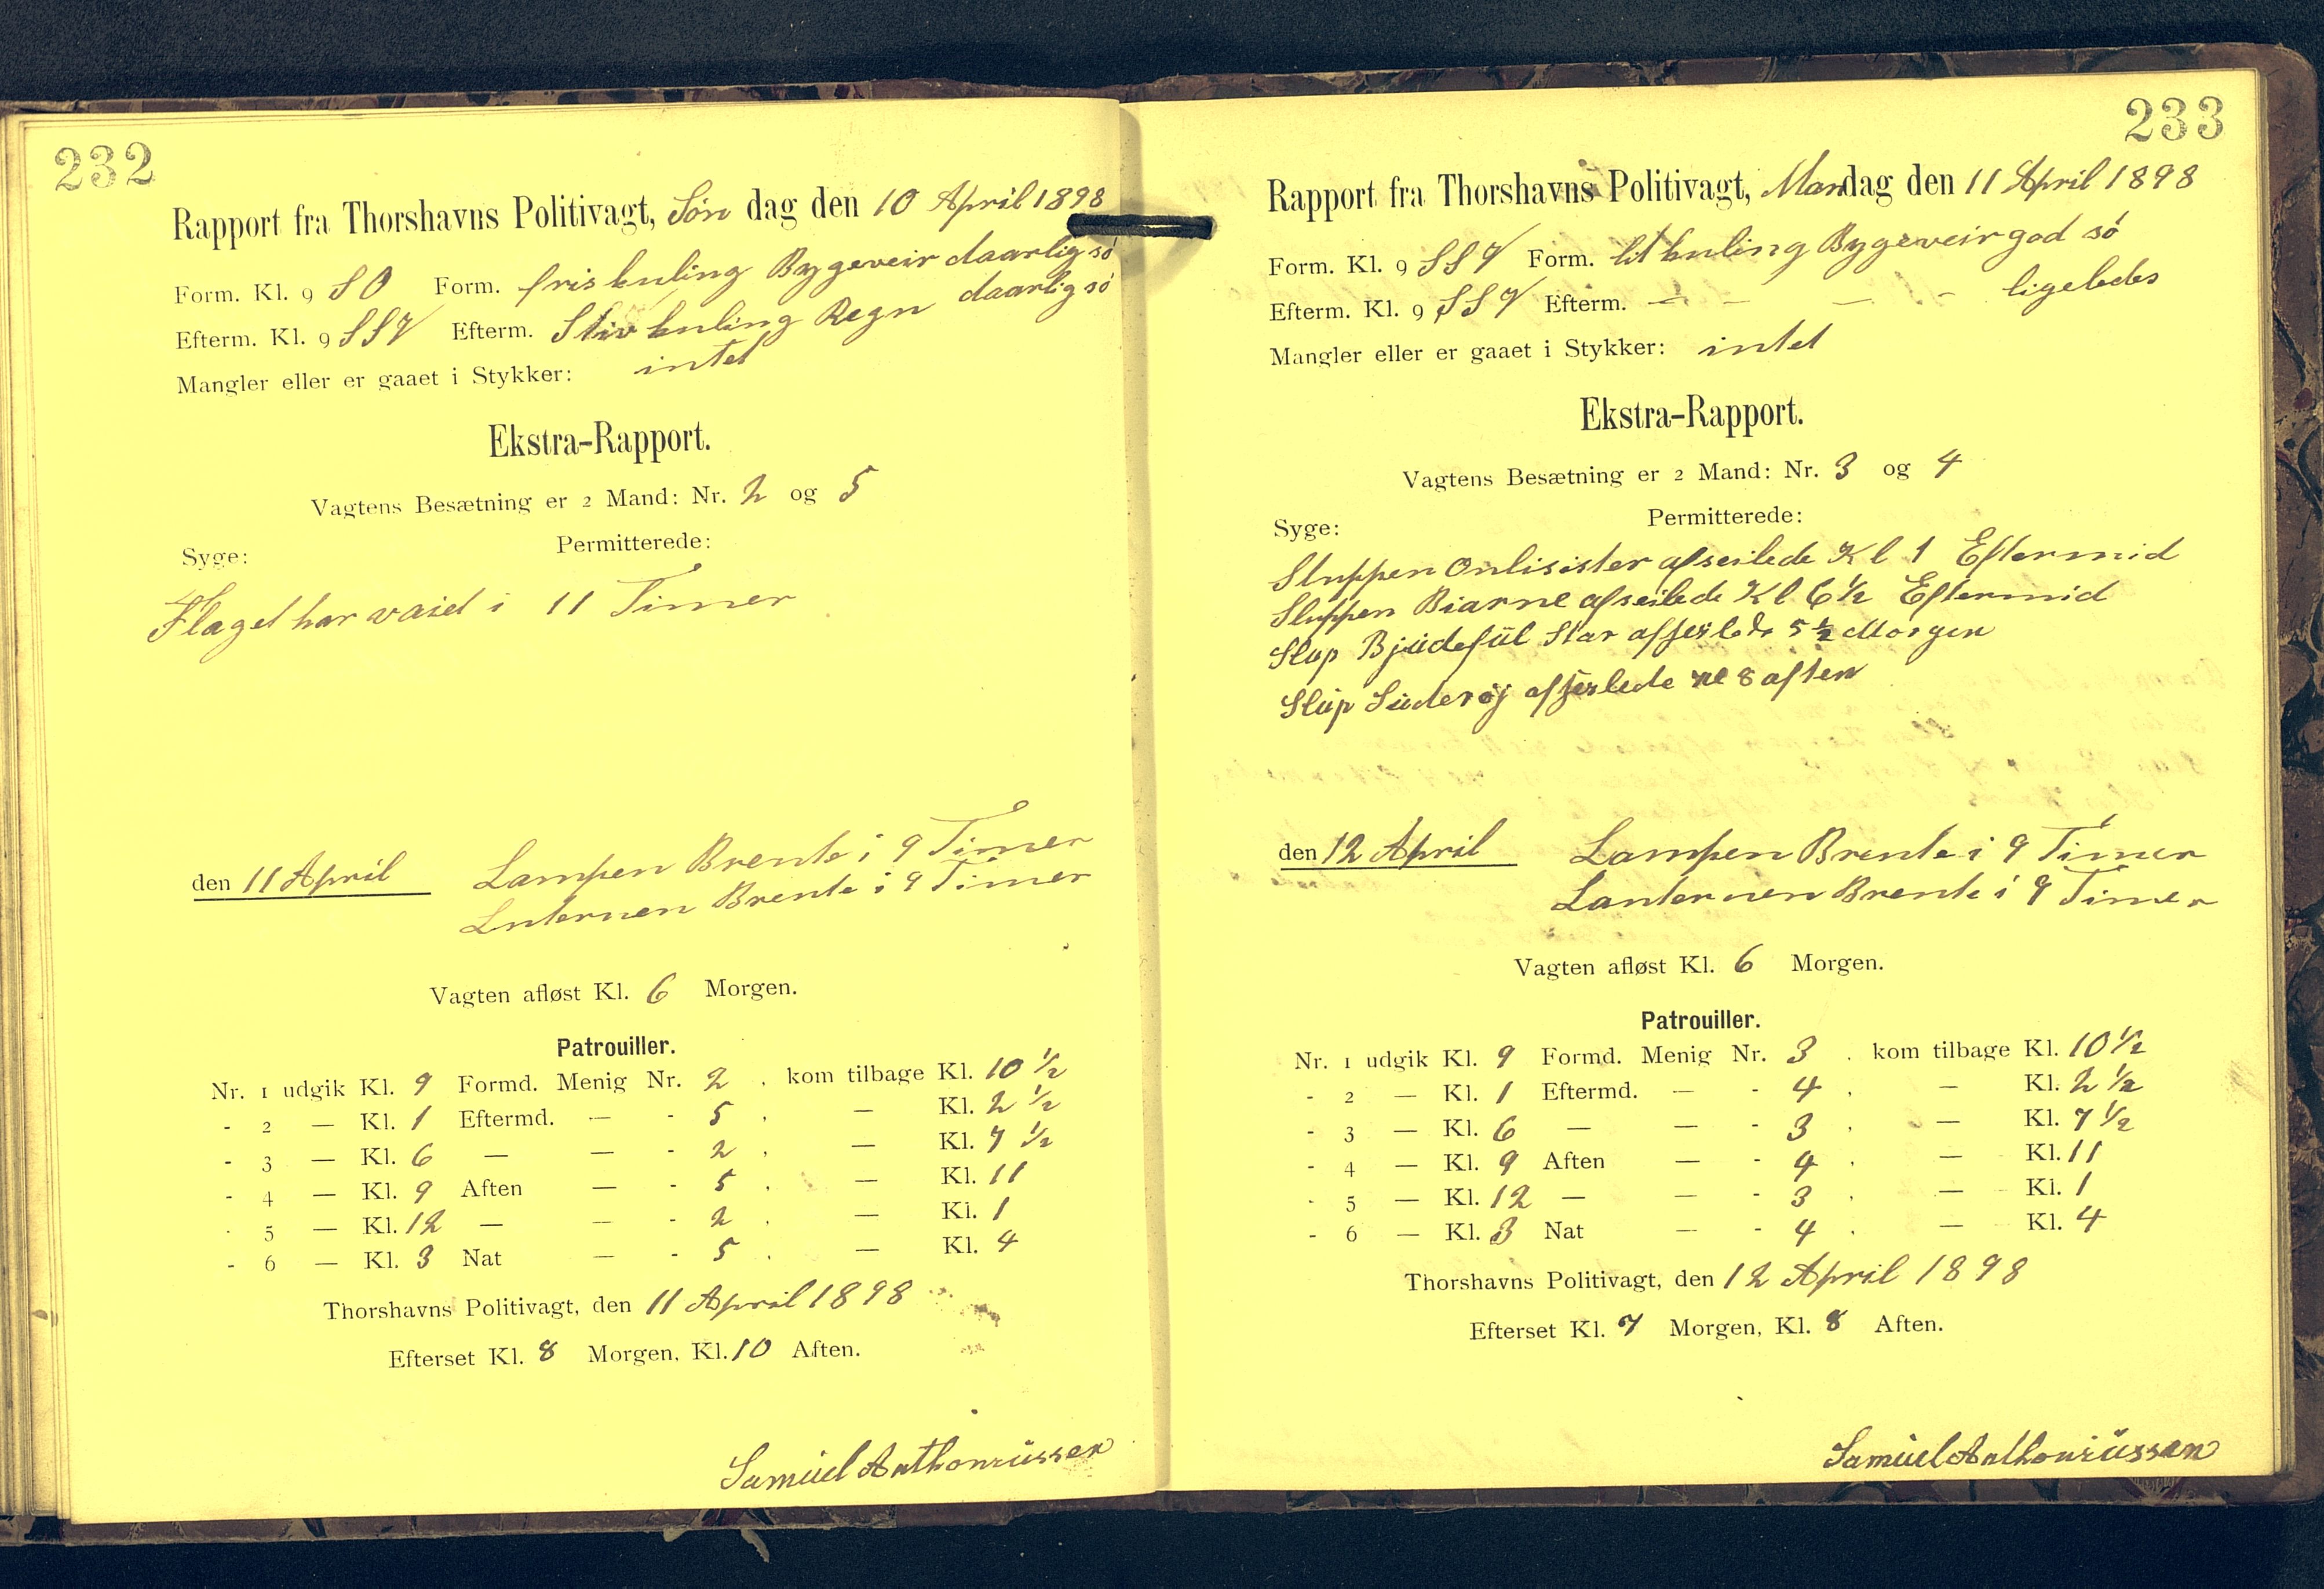 232
Rapport fra Thorshavns Politivagt, Søn dag den 10 April 1898
Form. Kl. 9 S O Form. fris kuling Bygeveir daarlig só
Efterm. Kl. 9 SSV Efterm. Stiv kuling Regn daarlig só
Mangler eller er gaaet i Stykker: intet
Ekstra-Rapport.
Vagtens Besætning er 2 Mand: Nr. 2 og 5
Syge: Permitterede:
Flaget har vaiet i 11 Timer
den 11 April Lampen Brente i 9 Timer
Lnternen Brente i 9 Timer
Vagten afløst Kl. 6 Morgen.
Patrouiller.
Nr. 1 udgik Kl. 9 Formd. Menig Nr. 2 . kom tilbage Kl. 10 ½
- 2 — Kl. 1 Eftermd. — - 5 . — Kl. 2 ½
- 3 — Kl. 6 — — - 2 . — Kl. 7 ½
- 4 — Kl. 9 Aften — - 5 . — Kl. 11
- 5 — Kl. 12 — — - 2 . — Kl. 1
- 6 — Kl. 3 Nat — - 5 . — Kl. 4
Thorshavns Politivagt, den 11 April 1898
Efterset Kl. 8 Morgen, Kl. 10 Aften.
Samüel Anthoniüssen
233
Rapport fra Thorshavns Politivagt, Mandag den 11 April 1898
Form. Kl. 9 SSV Form. lit kuling Bygeveir god só
Efterm. Kl. 9 SSV Efterm. — - — - ligeledes
Mangler eller er gaaet i Stykker: intet
Ekstra-Rapport.
Vagtens Besætning er 2 Mand: Nr. 3 og 4
Syge: Permitterede:
Sluppen Onlisister afseilede Kl 1 Eftermid
Sluppen Biarne afseilede Kl 6 ½ Eftermid
Slup Bjüdefül Star afseilede 5 ½ Morgen
Slüp Süderøj afseilede Kl 8 aften
den 12 April Lampen Brente i 9 Timer
Lanternen Brente i 9 Timer
Vagten afløst Kl. 6 Morgen.
Patrouiller.
Nr. 1 udgik Kl. 9 Formd. Menig Nr. 3 . kom tilbage Kl. 10 ½
- 2 — Kl. 1 Eftermd. — - 4 . — Kl. 2 ½
- 3 — Kl. 6 — — - 3 . — Kl. 7 ½
- 4 — Kl. 9 Aften — - 4 . — Kl. 11
- 5 — Kl. 12 — — - 3 . — Kl. 1
- 6 — Kl. 3 Nat — - 4 . — Kl. 4
Thorshavns Politivagt, den 12 April 1898
Efterset Kl. 7 Morgen, Kl. 8 Aften.
Samüel Anthoniüssen